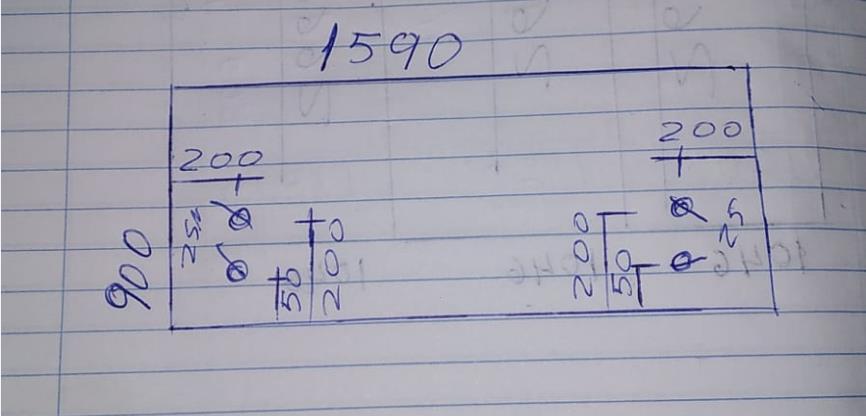 1590
200
200
25
25
900
50
200
200
50